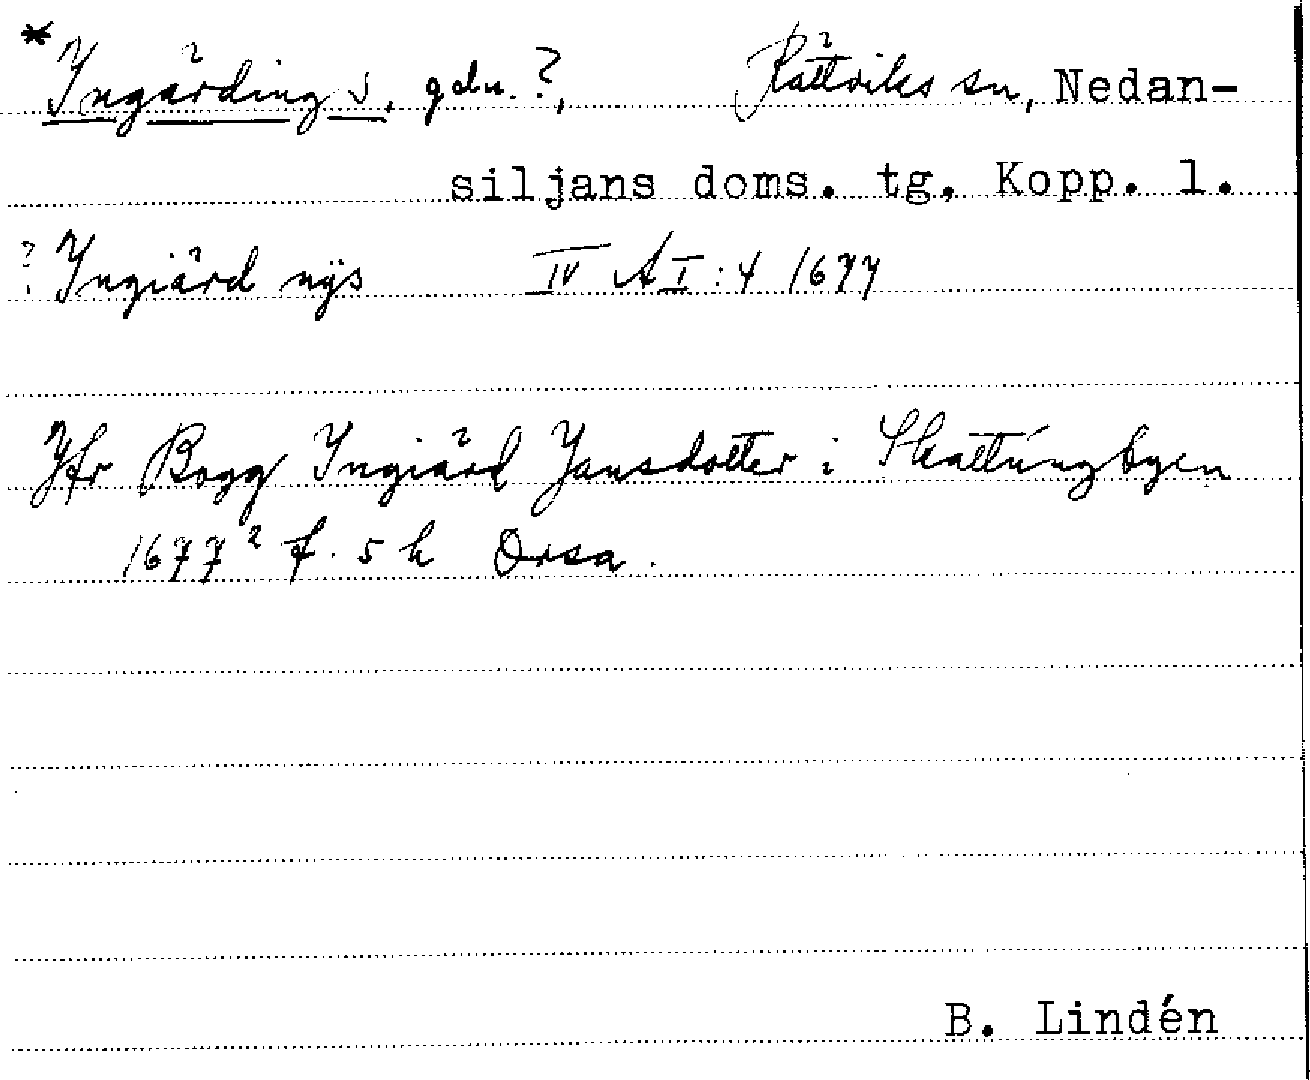 *Ingärdings, gdn.?, Rättviks sn, Nedan-
siljans doms. tg, Kopp. l.
? Ingiärd nÿs IV A I:4 1677
Jfr Bogg Ingiärd Jansdotter i Skattungbyen
1677² f. 5 h Orsa.
B. Lindén